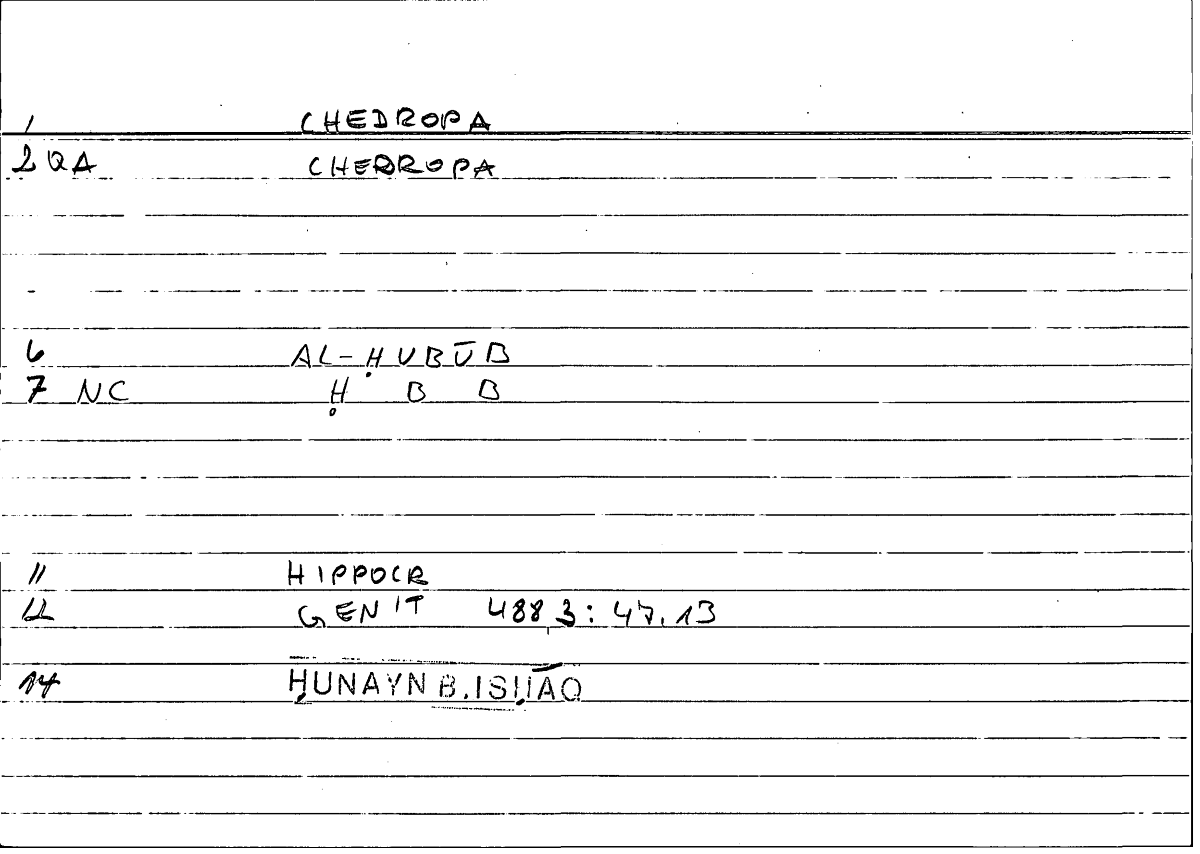 1 CHEDROPA
2 QA CHEDROPA
6 AL-ḤUBŪB
7 NC Ḥ B B
11 HIPPOCR
12 GENIT 488,3: 47.13
14 ḤUNAYN B. ISḤĀQ